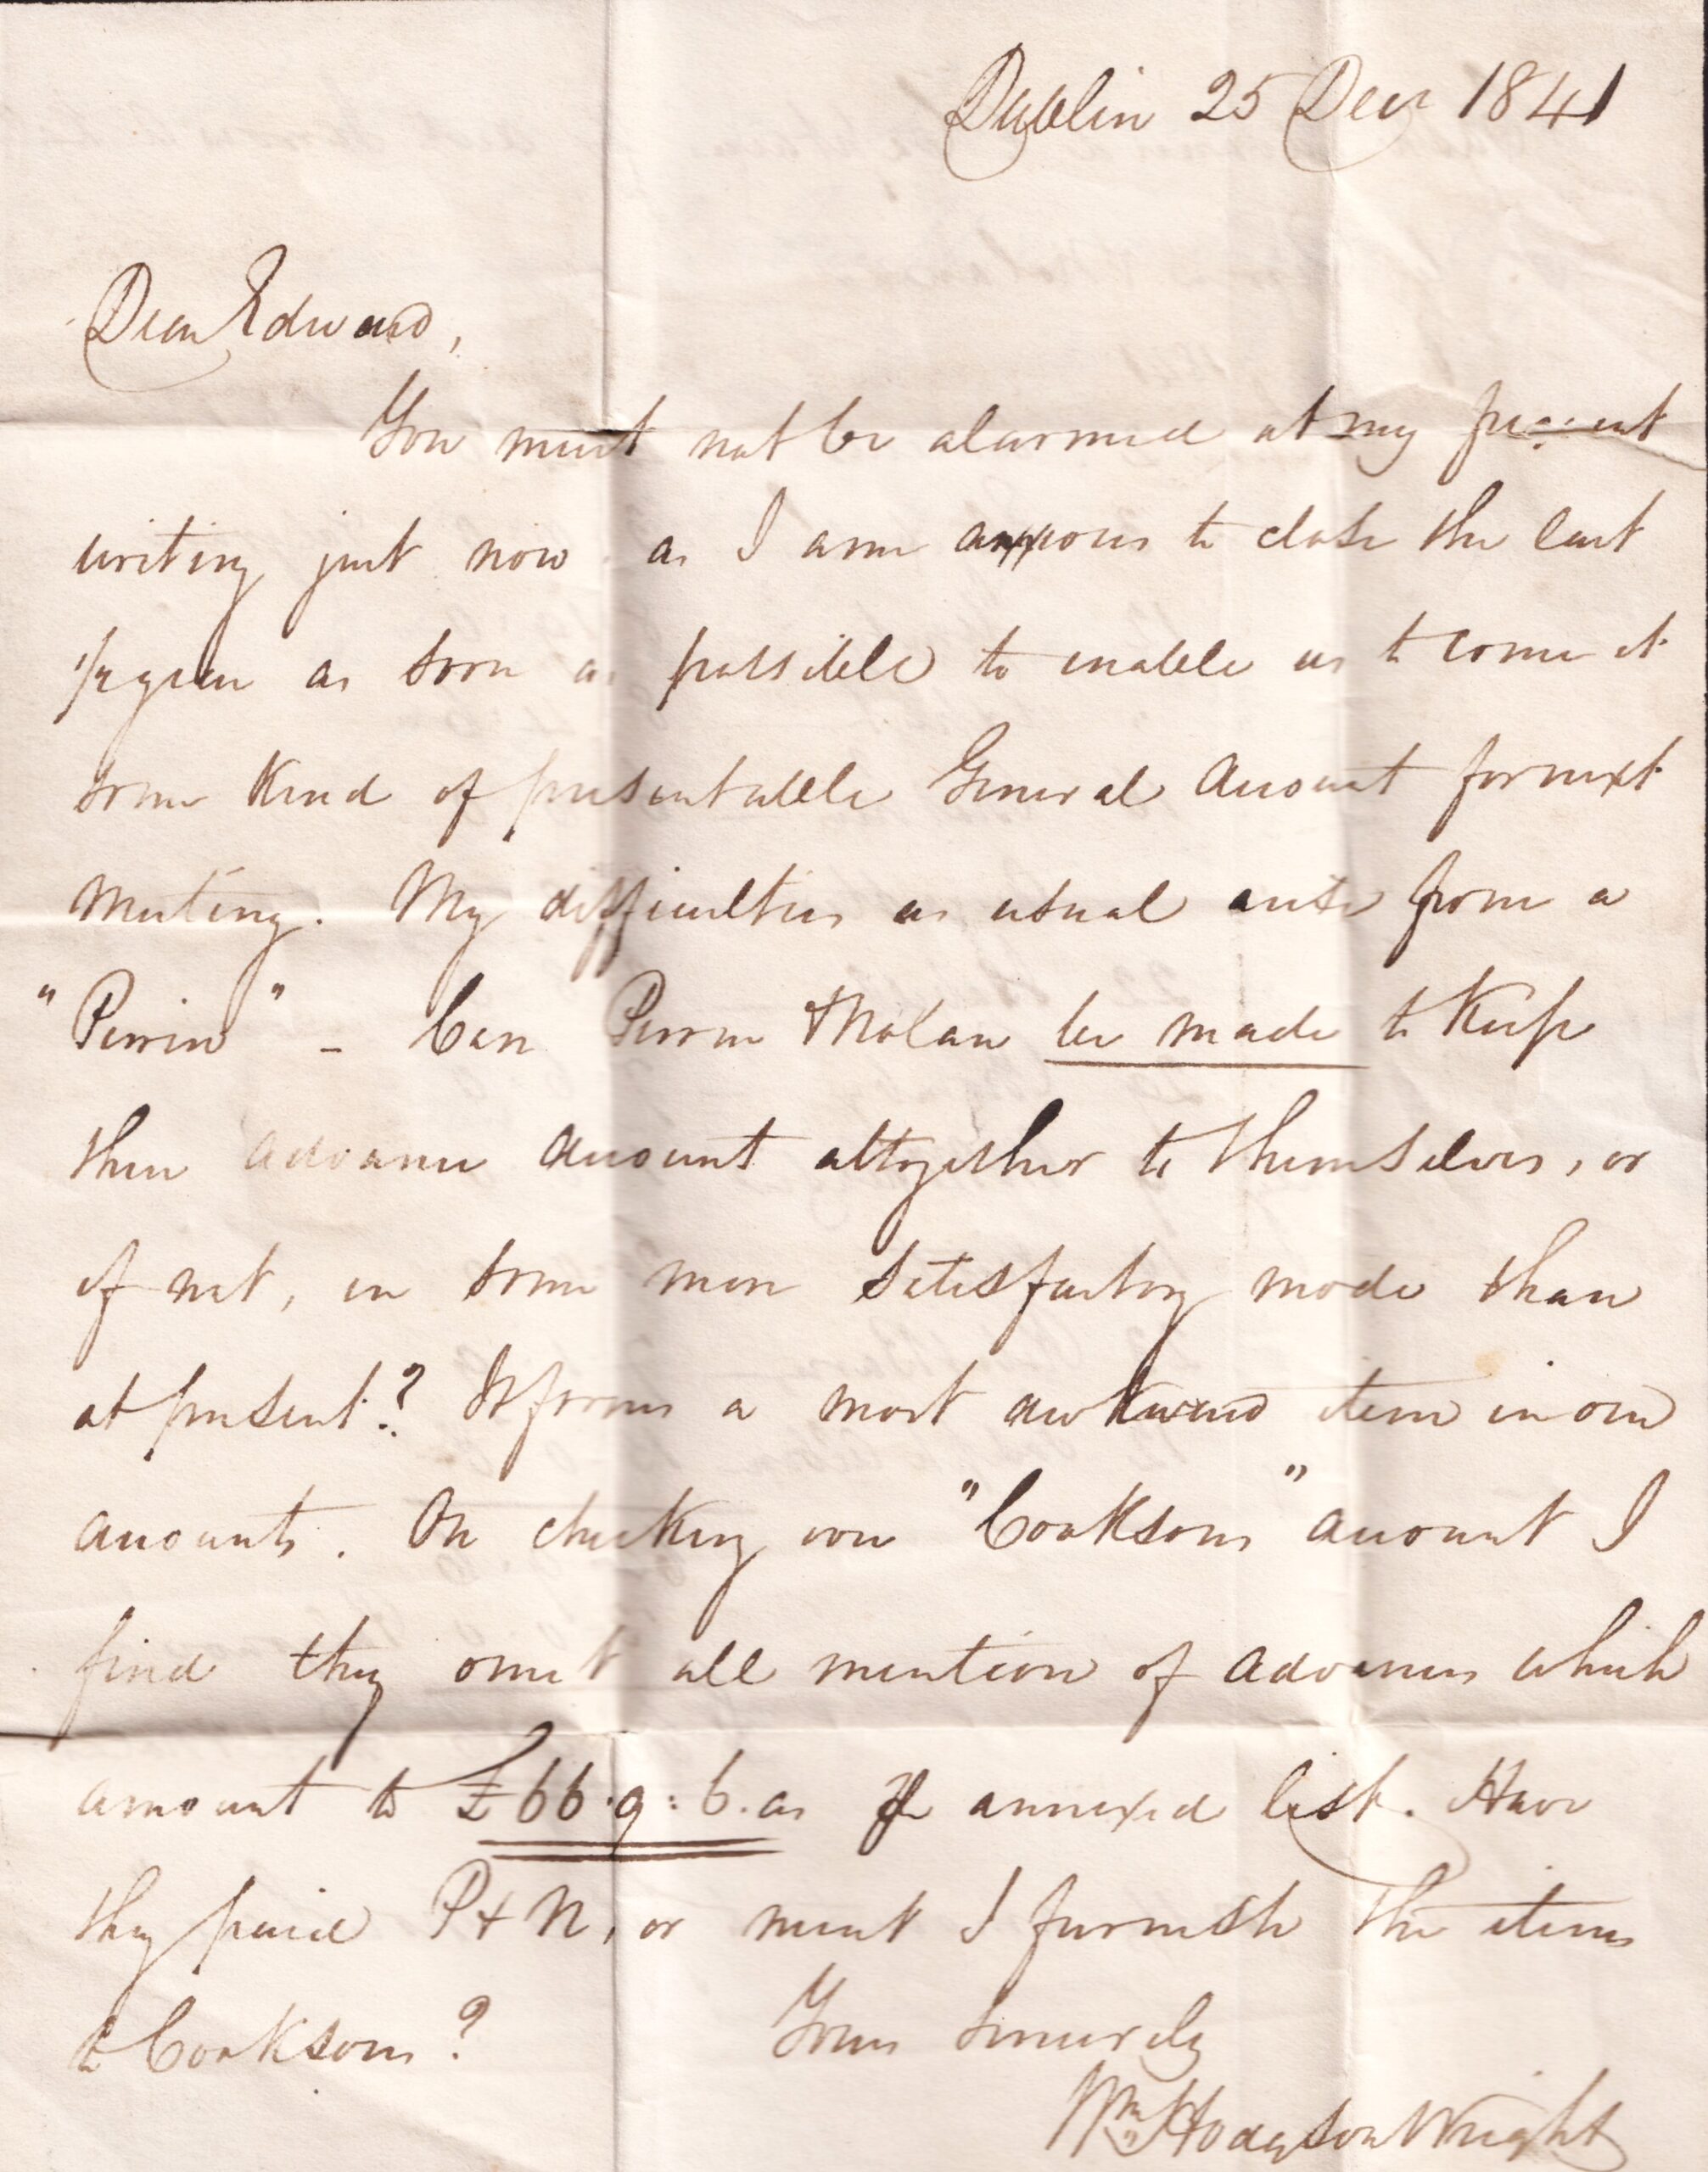 Dublin 25 Decr 1841
Dear Edward,
You must not be alarmed at my present
writing just now as I am anxious to close the last
1/2 year as soon as possible to enable us to come at
some kind of presentable General Account for next
Meeting. My difficulties as usual arise from a
"Perrin" - Can Perrin & Nolan be made to Keep
their advance account altogether to themselves, or
if not, in some more satisfactory mode than
at present? It forms a most awkward item in our
accounts. On checking over "Cooksons" account I
find they omit all mention of advances which
amount to £66.9:6. as pr annexed list. Have
they paid P & N, or must I furnish the items
to Cooksons?
Yours sincerely
Wm Hodgson Wright